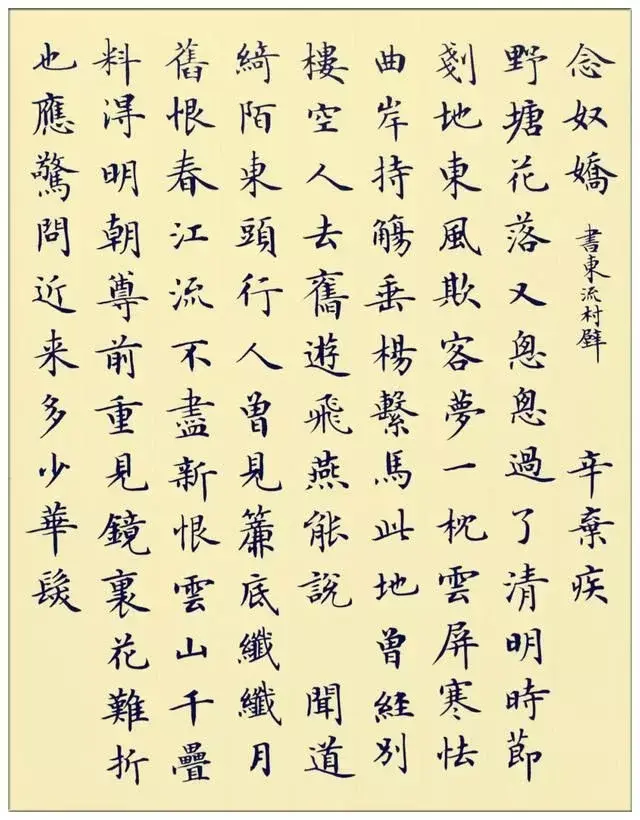 念奴嬌 書東流村壁 辛棄疾
野塘花落又悤悤過了清明時節
剗地東風欺客夢一枕雲屏寒怯
曲岸持觴垂楊繫馬此地曾経別
樓空人去舊遊飛燕能說 聞道
綺陌東頭行人曾見簾底纖纖月
舊恨春江流不盡新恨雲山千疊
料得明朝尊前重見鏡裏花難折
也應驚問近来多少華髮